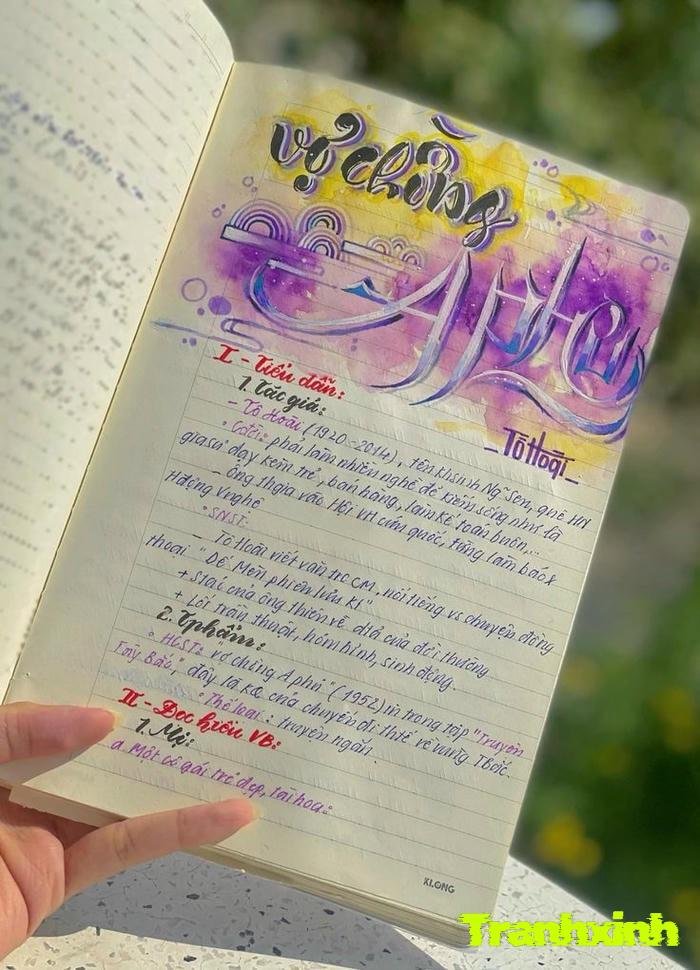 vợ chồng
A Phủ
_Tô Hoài_
I - Tiểu dẫn:
1. Tác giả:
- Tô Hoài (1920-2014), tên khsinh Ng~ Sen, quê HN
• Cđời: phải làm nhiều nghề để kiếm sống như là
gia sư dạy kèm trẻ, bán hàng, làm kế toán buôn,...
- Ông thgia vào Hội VH cứu quốc, từng làm báo &
Hđộng Vnghệ
• SNST:
- Tô Hoài viết văn trc CM, nổi tiếng vs chuyện đồng
thoại "Dế Mèn phiêu lưu kí"
+ Stác của ông thiên về của đời thường
+ Lối trần thuật, hóm hỉnh, sinh động.
2. Tphẩm:
• HCST: "vợ chồng A phủ" (1952) in trong tập "Truyện
Tây Bắc", đây là kq của chuyến đi thtế về vùng TBắc.
• Thể loại: truyện ngắn.
II - Đọc hiểu VB:
1. Mị:
a. Một cô gái trẻ đẹp, tài hoa:
KLONG
Tranhxinh